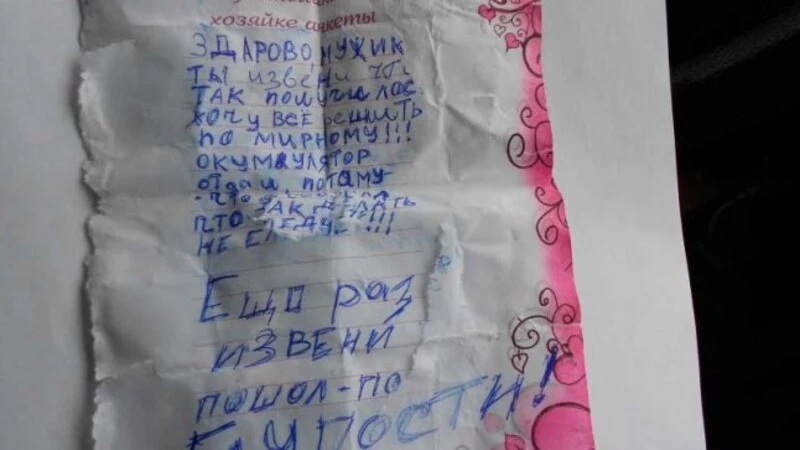 хозяйке анкеты
ЗДАРОВО МУЖИК
ТЫ ИЗВЕНИ ЧТ
ТАК ПОЛУЧИЛОС
ХОЧУ ВСЁ РЕШИТЬ
ПО МИРНОМУ!!!
ОКУМУЛЯТОР
ОТДАЛ, ПОТАМУ-
ЧТО
ЧТО ТАК ДЕЛАТЬ
НЕ СЛЕДУЕ !!!!
ЕЩО раз
ИЗВЕНИ
ПОШОЛ-ПО
ГЛУПОСТИ!